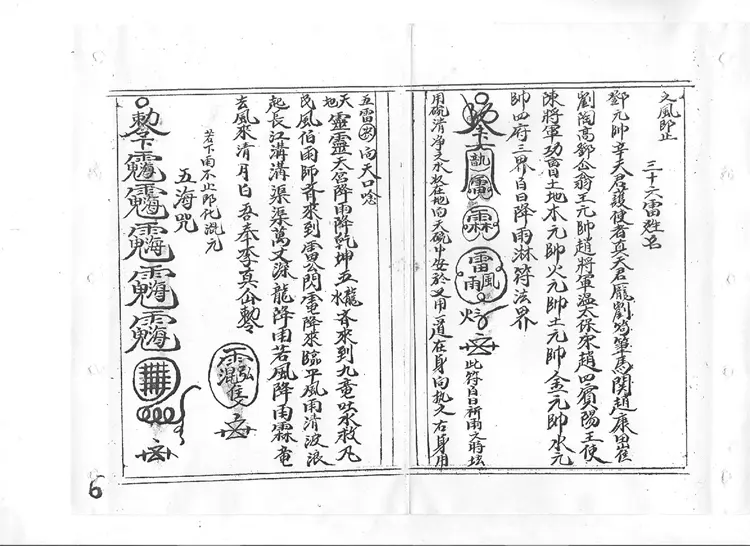 之風即止
三十六雷姓名
鄧元帥辛天君護使者真天君龐劉苟畢馬関趙康田崔
劉陶高鄒公翁王元帥趙將軍溫太保朱趙四賓陽王使
陳將軍功曹土地木元帥火元帥土元帥金元帥水元
帥四府三界白日降雨淋符法界
霖
雷風雨
此符白日祈雨之時坛
用硫清净之水放在地向天硫中安於又用一道在身向执又右身用
五雷向天口唸
天地靈靈天宮降雨降乾坤五龍水斉來到九竜吐水救凡
民風伯雨師斉來到雷公閃電降來臨平風雨清波浪
起長江溝溝渠渠萬丈深龍降雨若風降雨霖竜
去風來清月白吾奉李真仚勅
若下雨不止即化混元
五海咒
勅令
6